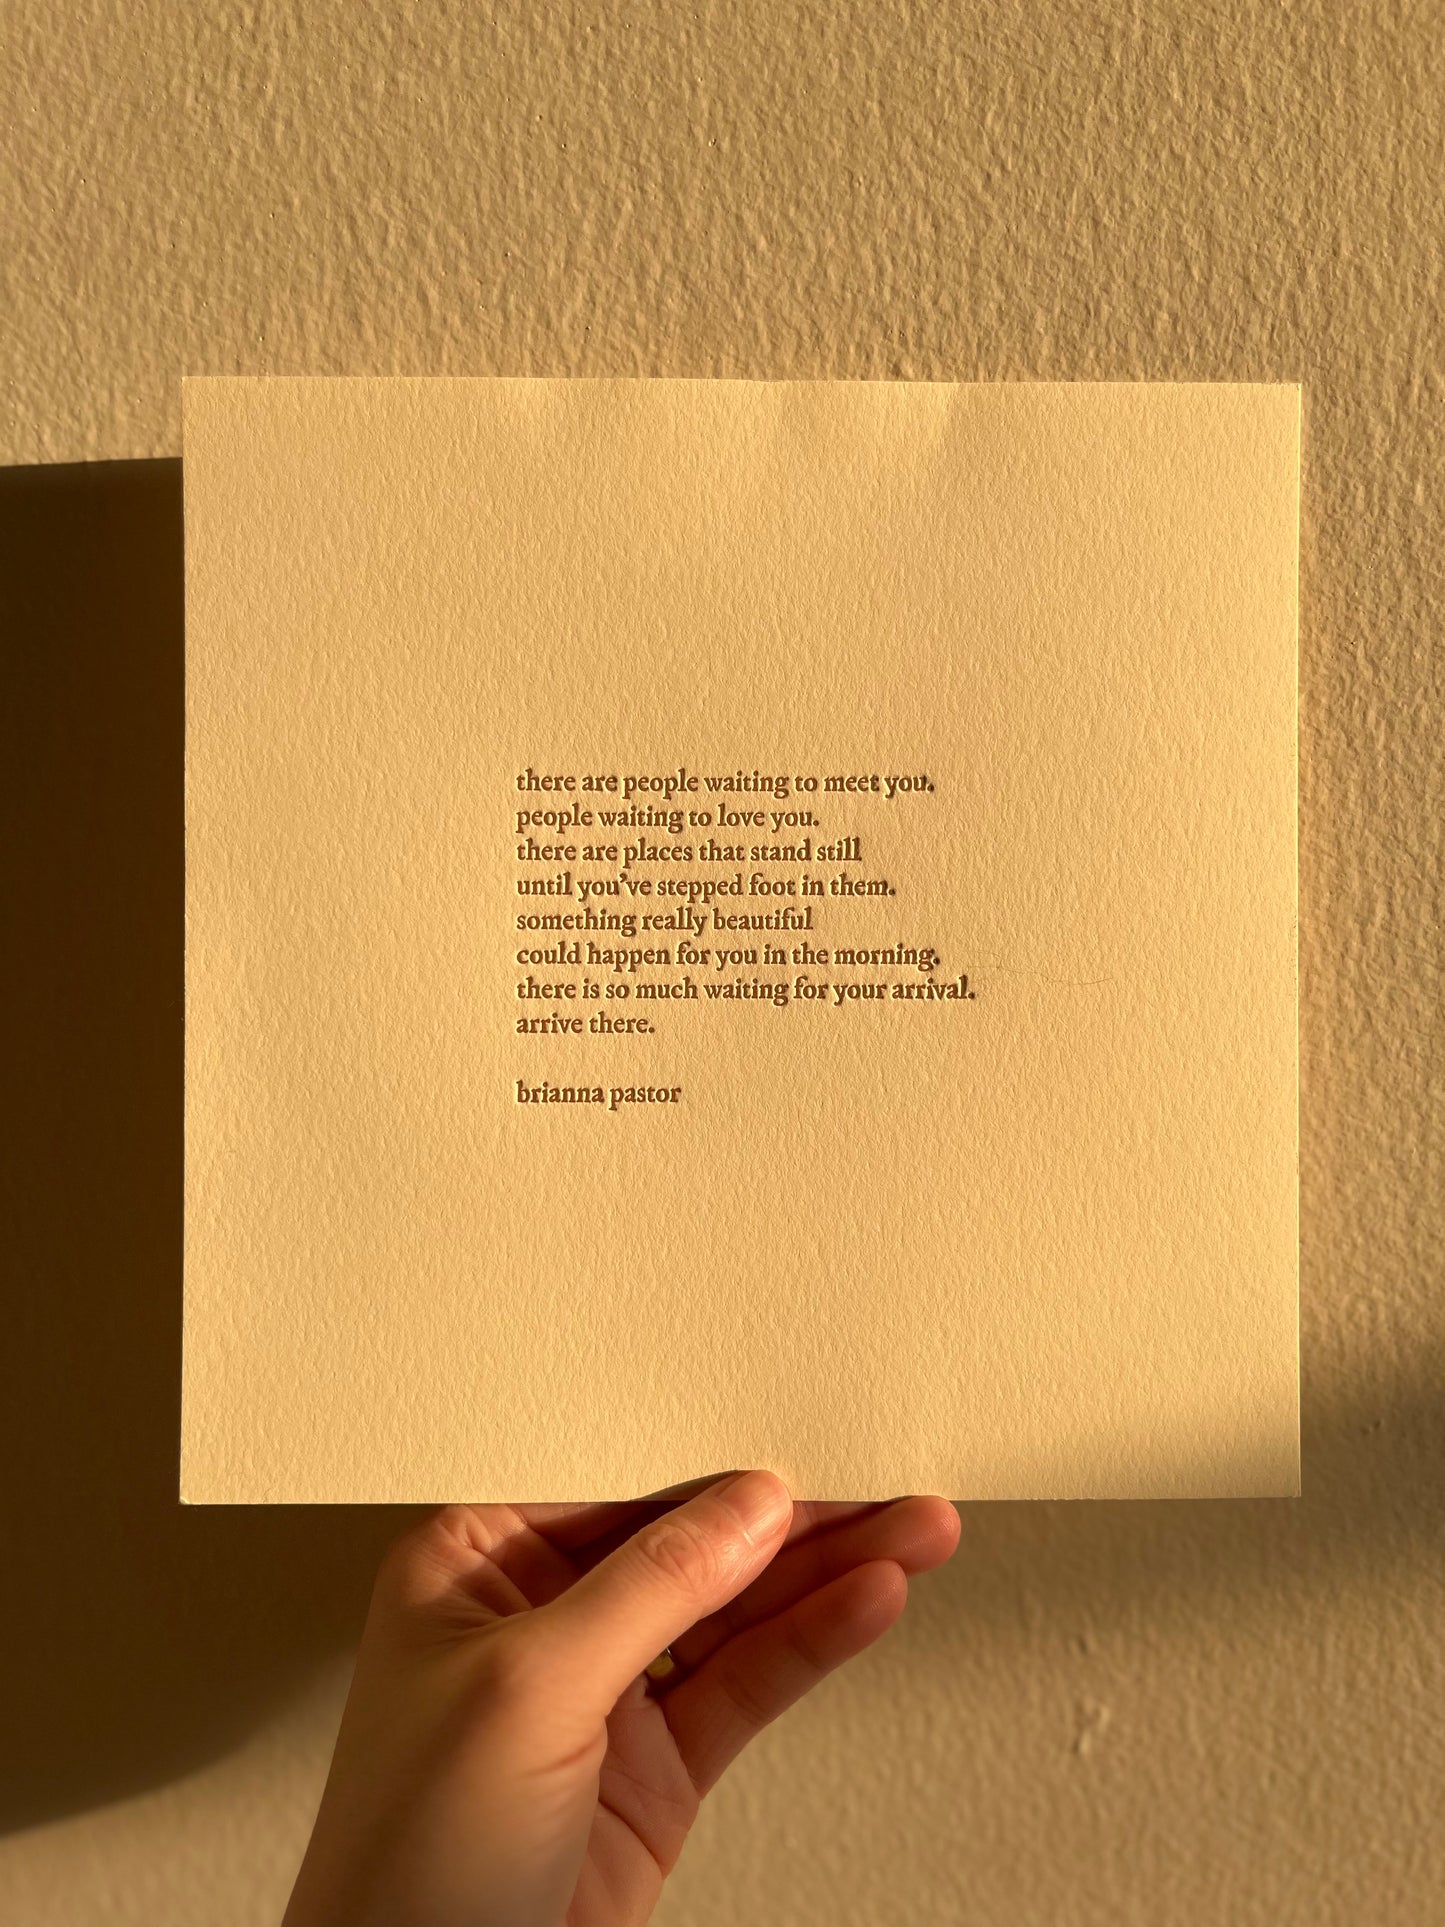 there are people waiting to meet you.
people waiting to love you.
there are places that stand still
until you’ve stepped foot in them.
something really beautiful
could happen for you in the morning.
there is so much waiting for your arrival.
arrive there.
brianna pastor